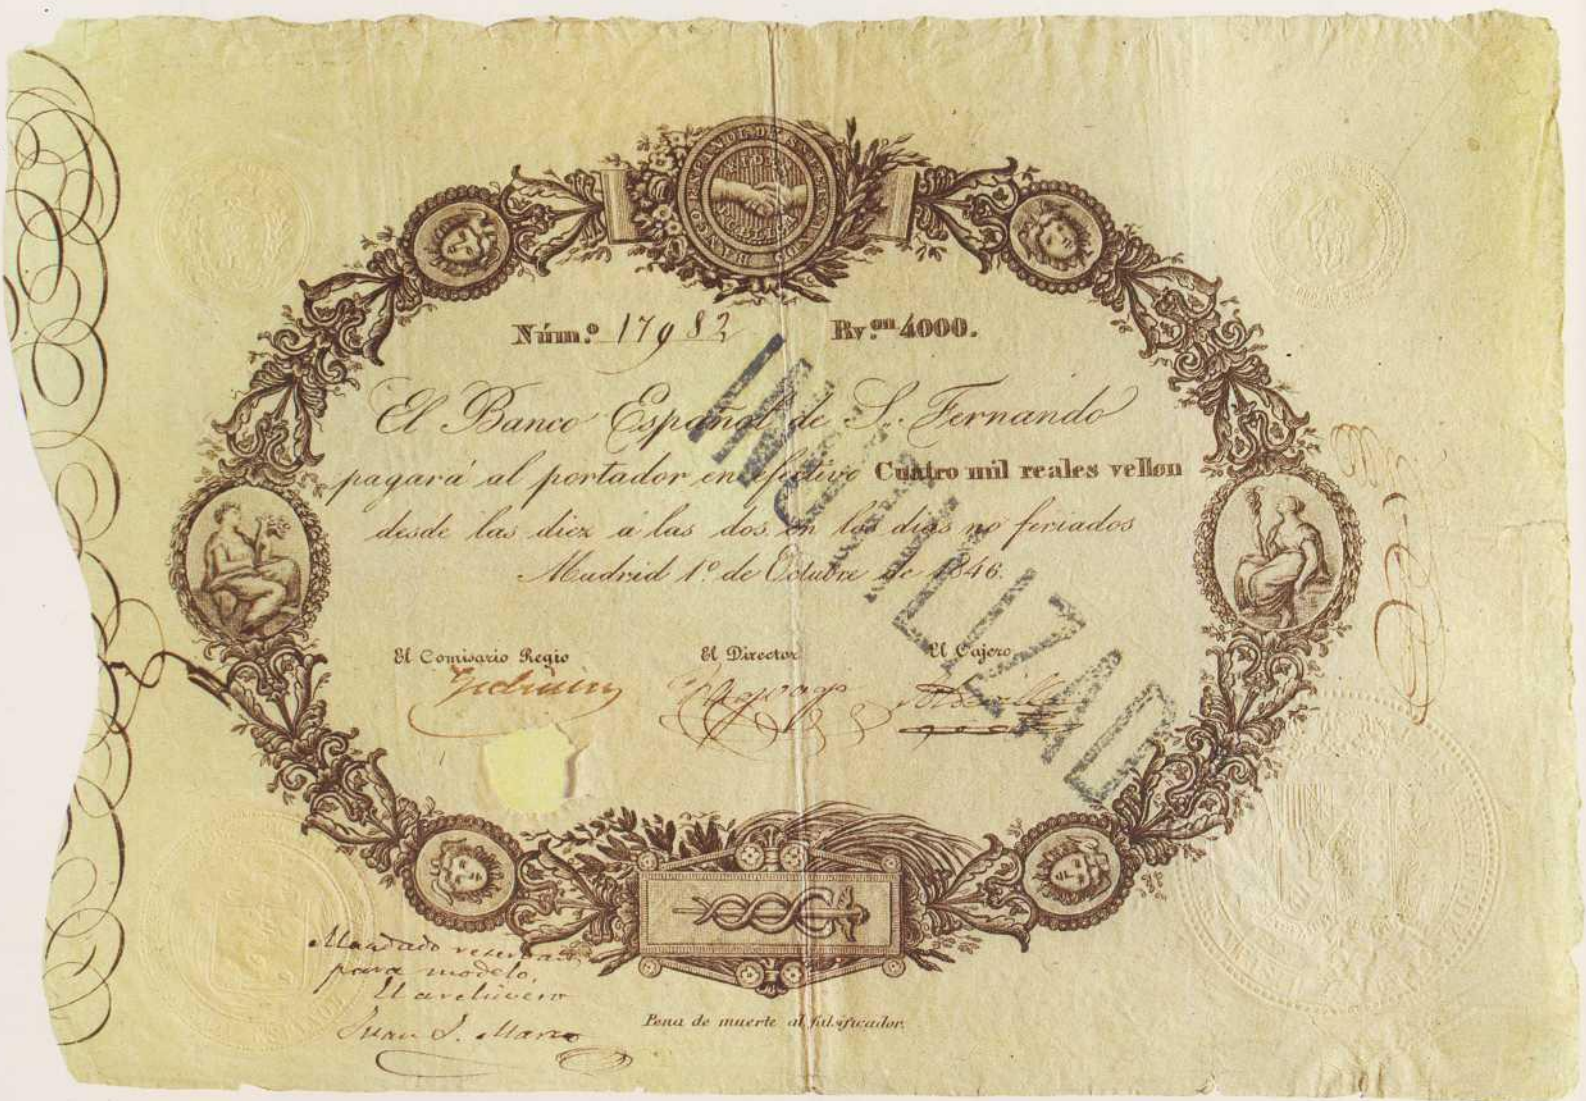 BANCO ESPAÑOL DE SAN FERNANDO
Núm.º 17982 Rv.ᵒⁿ 4000.
El Banco Español de S. Fernando
pagará al portador en efectivo Cuatro mil reales vellon
desde las diez a las dos en los dias no feriados
Madrid 1º de Octubre de 1846.
INUTILIZADO
El Comisario Regio El Director El Cajero
Mandado reservar
para modelo,
El archivero
Juan
Pena de muerte al falsificador.